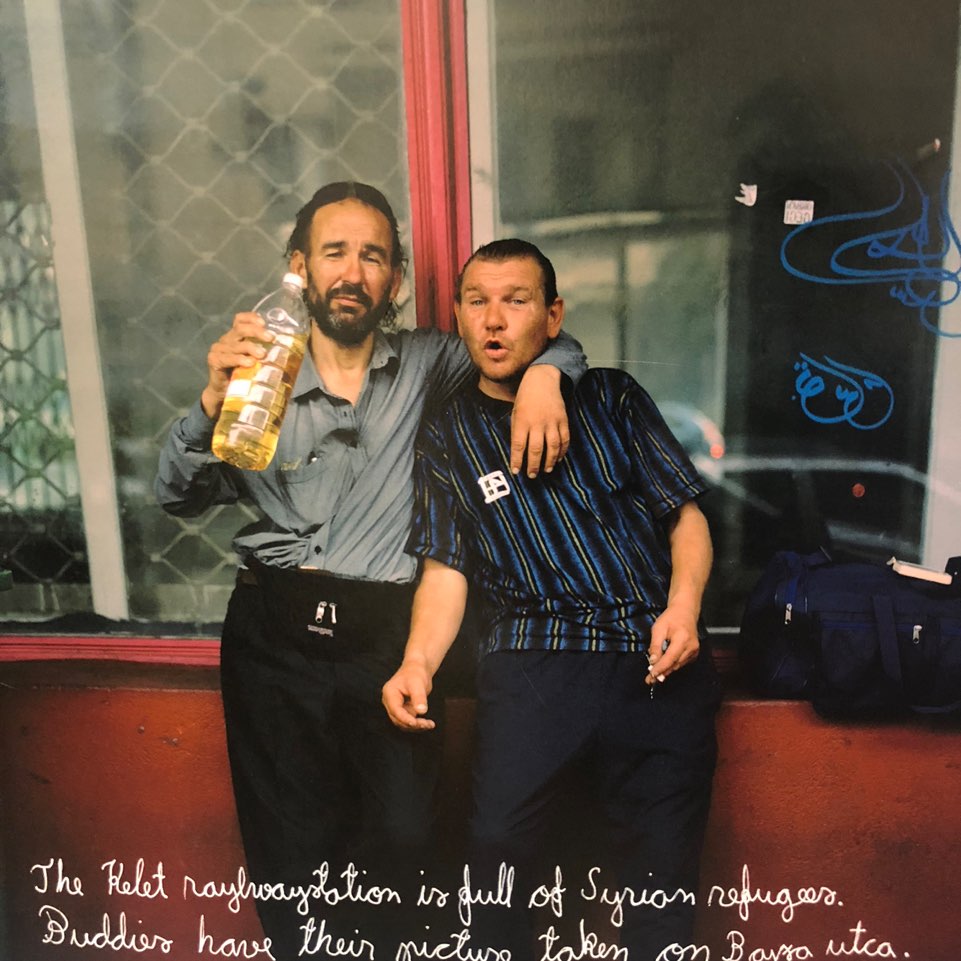 The Kelet raylwaystation is full of Syrian refugees.
Buddies have their picture taken on Baysa utca.